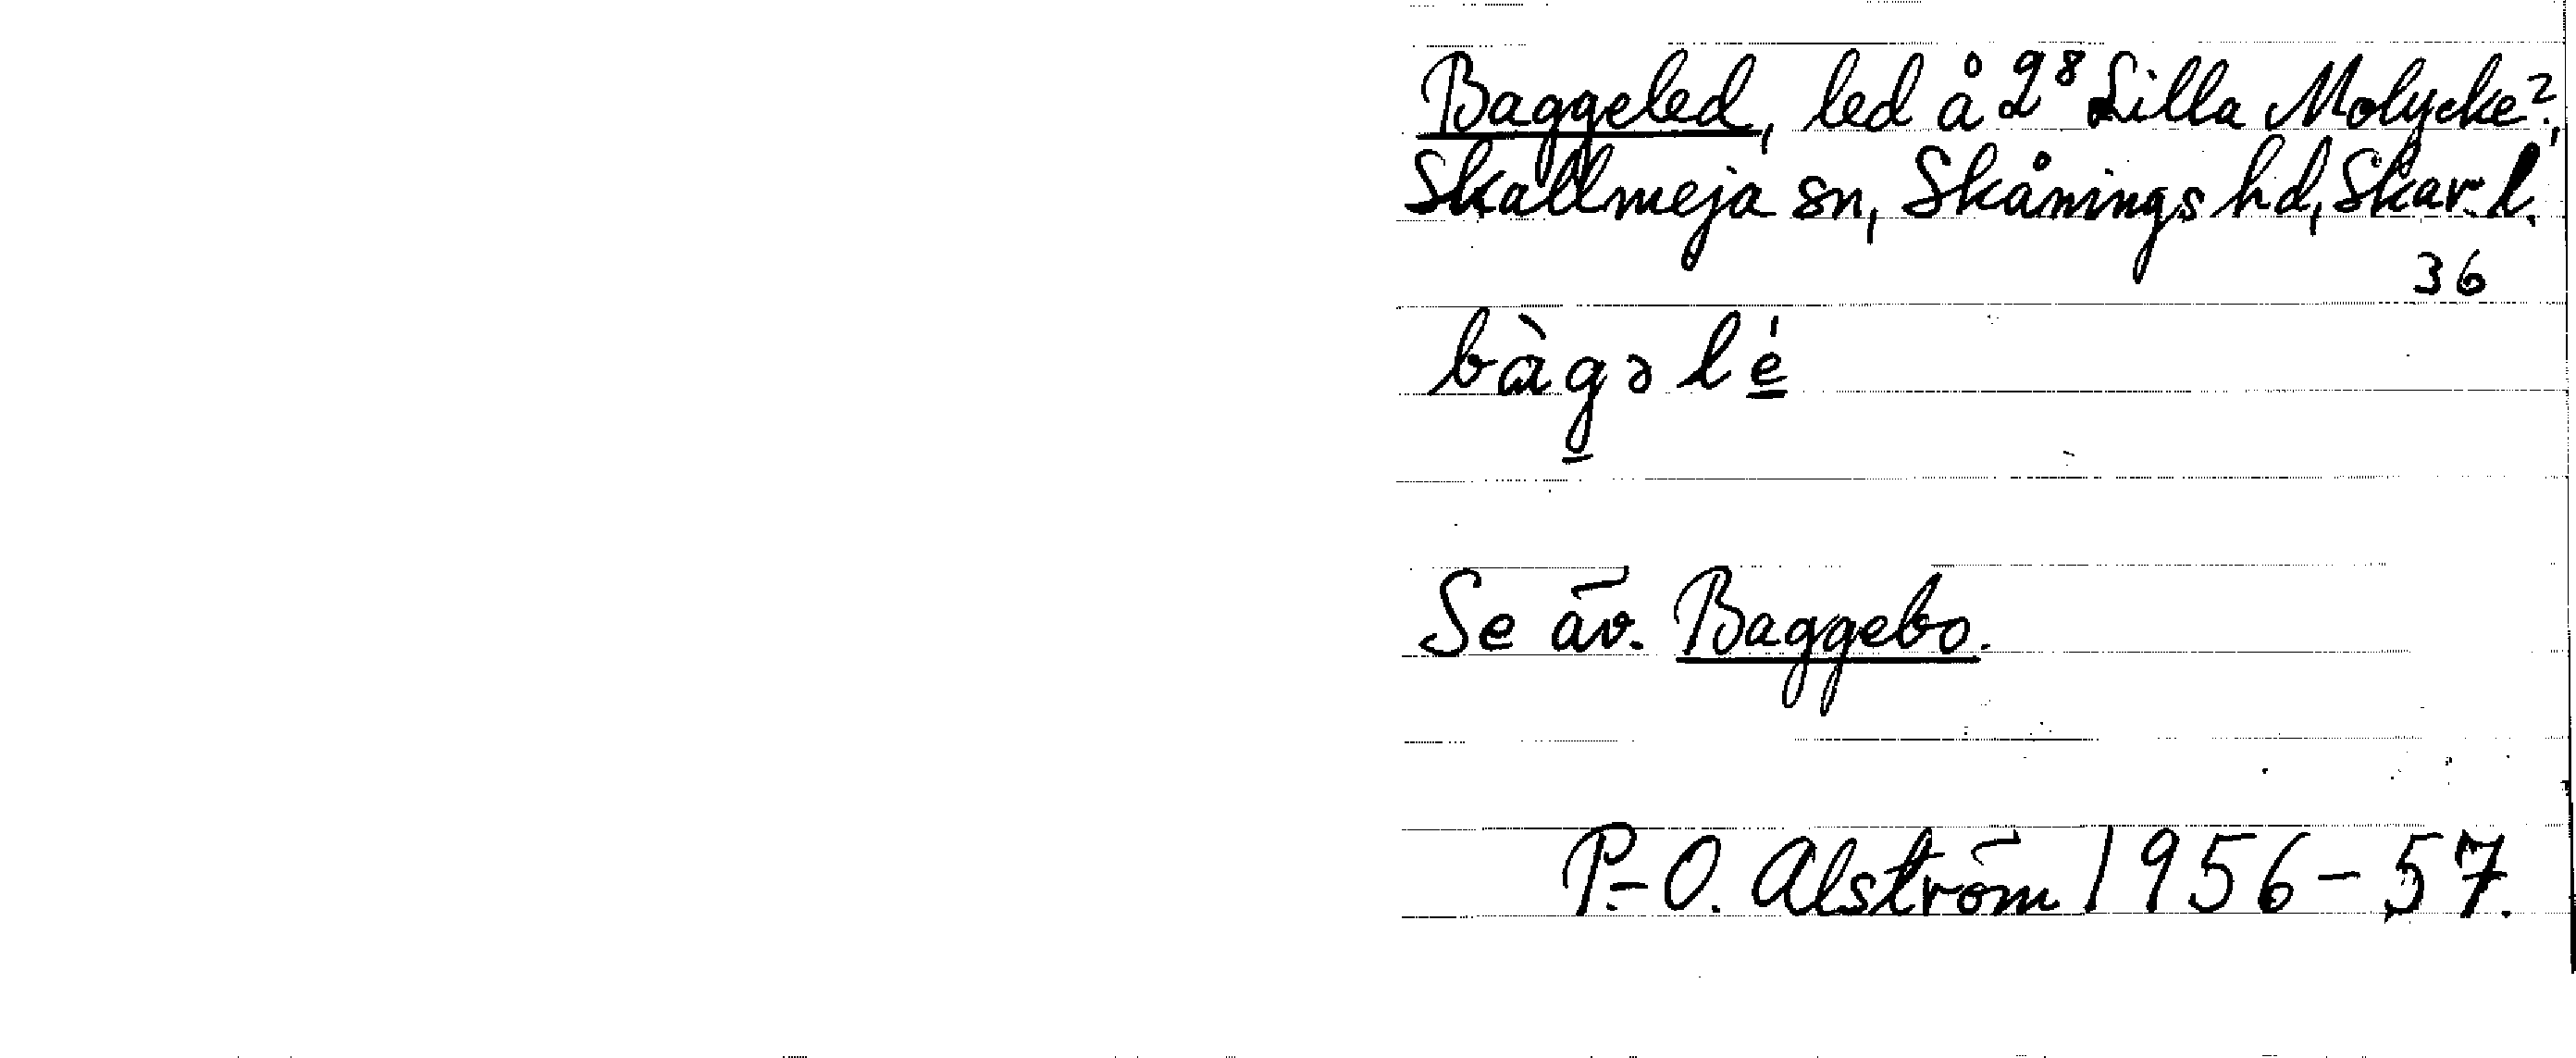 Baggeled, led å 2⁸ Lilla Molycke²,
Skallmeja sn, Skånings hd, Skar. l.
36
bàgəlé
Se äv. Baggebo.
P.-O. Alström 1956-57.